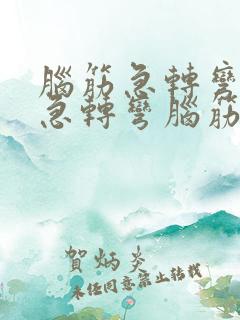 腦筋急轉彎
急轉彎腦筋
賀炳炎
未經同意禁止轉載